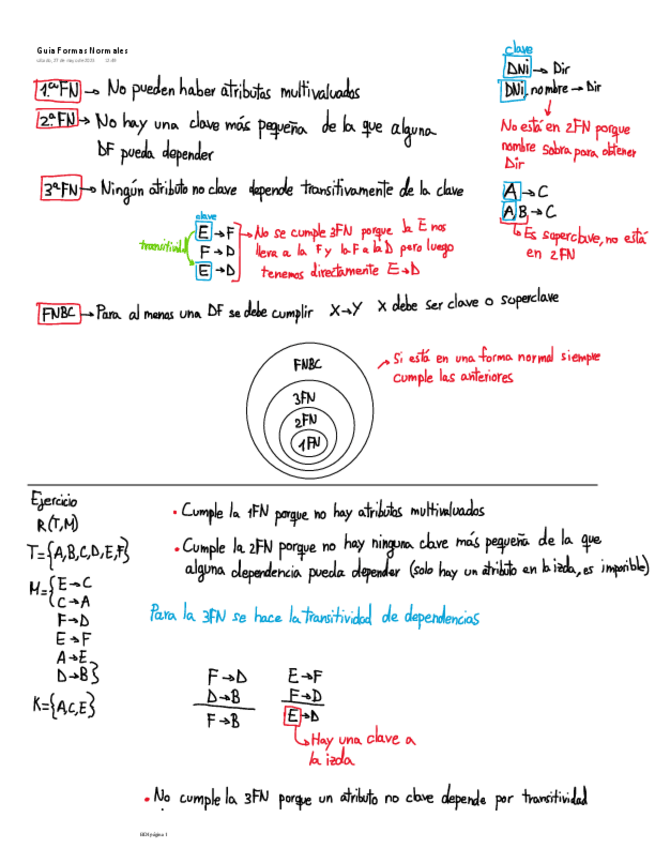 Guia Formas Normales
sábado, 27 de mayo de 2023
clave
DNi → Dir
DNi, nombre → Dir
No está en 2FN porque
nombre sobra para obtener
Dir
A → C
A B → C
Es superclave, no está
en 2FN
1.ª FN → No pueden haber atributos multivaluados
2.ª FN → No hay una clave más pequeña de la que alguna
DF pueda depender
3ª FN → Ningún atributo no clave depende transitivamente de la clave
clave
transitividad
E → F
F → D
E → D
→ No se cumple 3FN porque la E nos
lleva a la F y la F a la D pero luego
tenemos directamente E → D
FNBC → Para al menos una DF se debe cumplir X → Y X debe ser clave o superclave
FNBC
3FN
2FN
1FN
Si está en una forma normal siempre
cumple las anteriores
Ejercicio
R(T,M)
T={A,B,C,D,E,F}
M={E → C
C → A
F → D
E → F
A → E
D → B}
K={A,C,E}
• Cumple la 1FN porque no hay atributos multivaluados
• Cumple la 2FN porque no hay ninguna clave más pequeña de la que
alguna dependencia pueda depender (solo hay un atributo en la izda, es imposible)
Para la 3FN se hace la transitividad de dependencias
F → D
D → B
F → B
E → F
F → D
E → D
Hay una clave a
la izda
• No cumple la 3FN porque un atributo no clave depende por transitividad